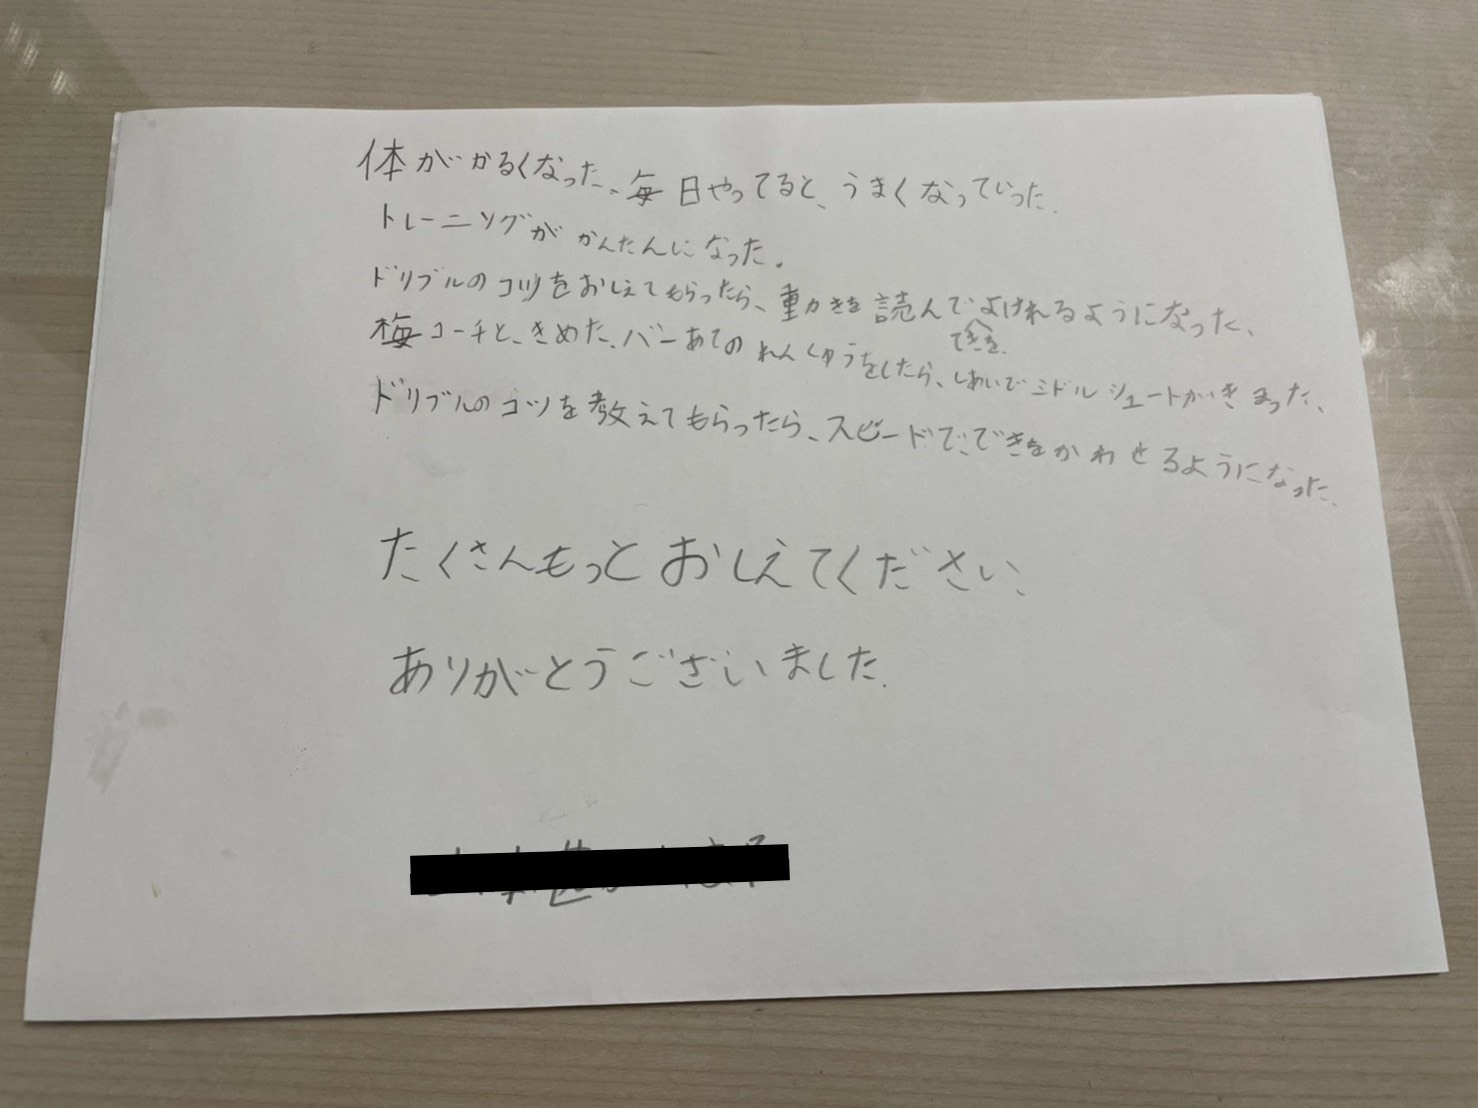 体がかるくなった、毎日やってると、うまくなっていった.
トレーニングがかんたんになった。
ドリブルのコツをおしえてもらったら、動きを読んでよけれるようになった、
てきを.
梅コーチと、きめた、バーあてのれんしゅうをしたら、しあいでミドルシュートがきまった、
ドリブルのコツを教えてもらったら、スピードでできをかわせるようになった、
たくさんもっとおしえてください、
ありがとうございました.